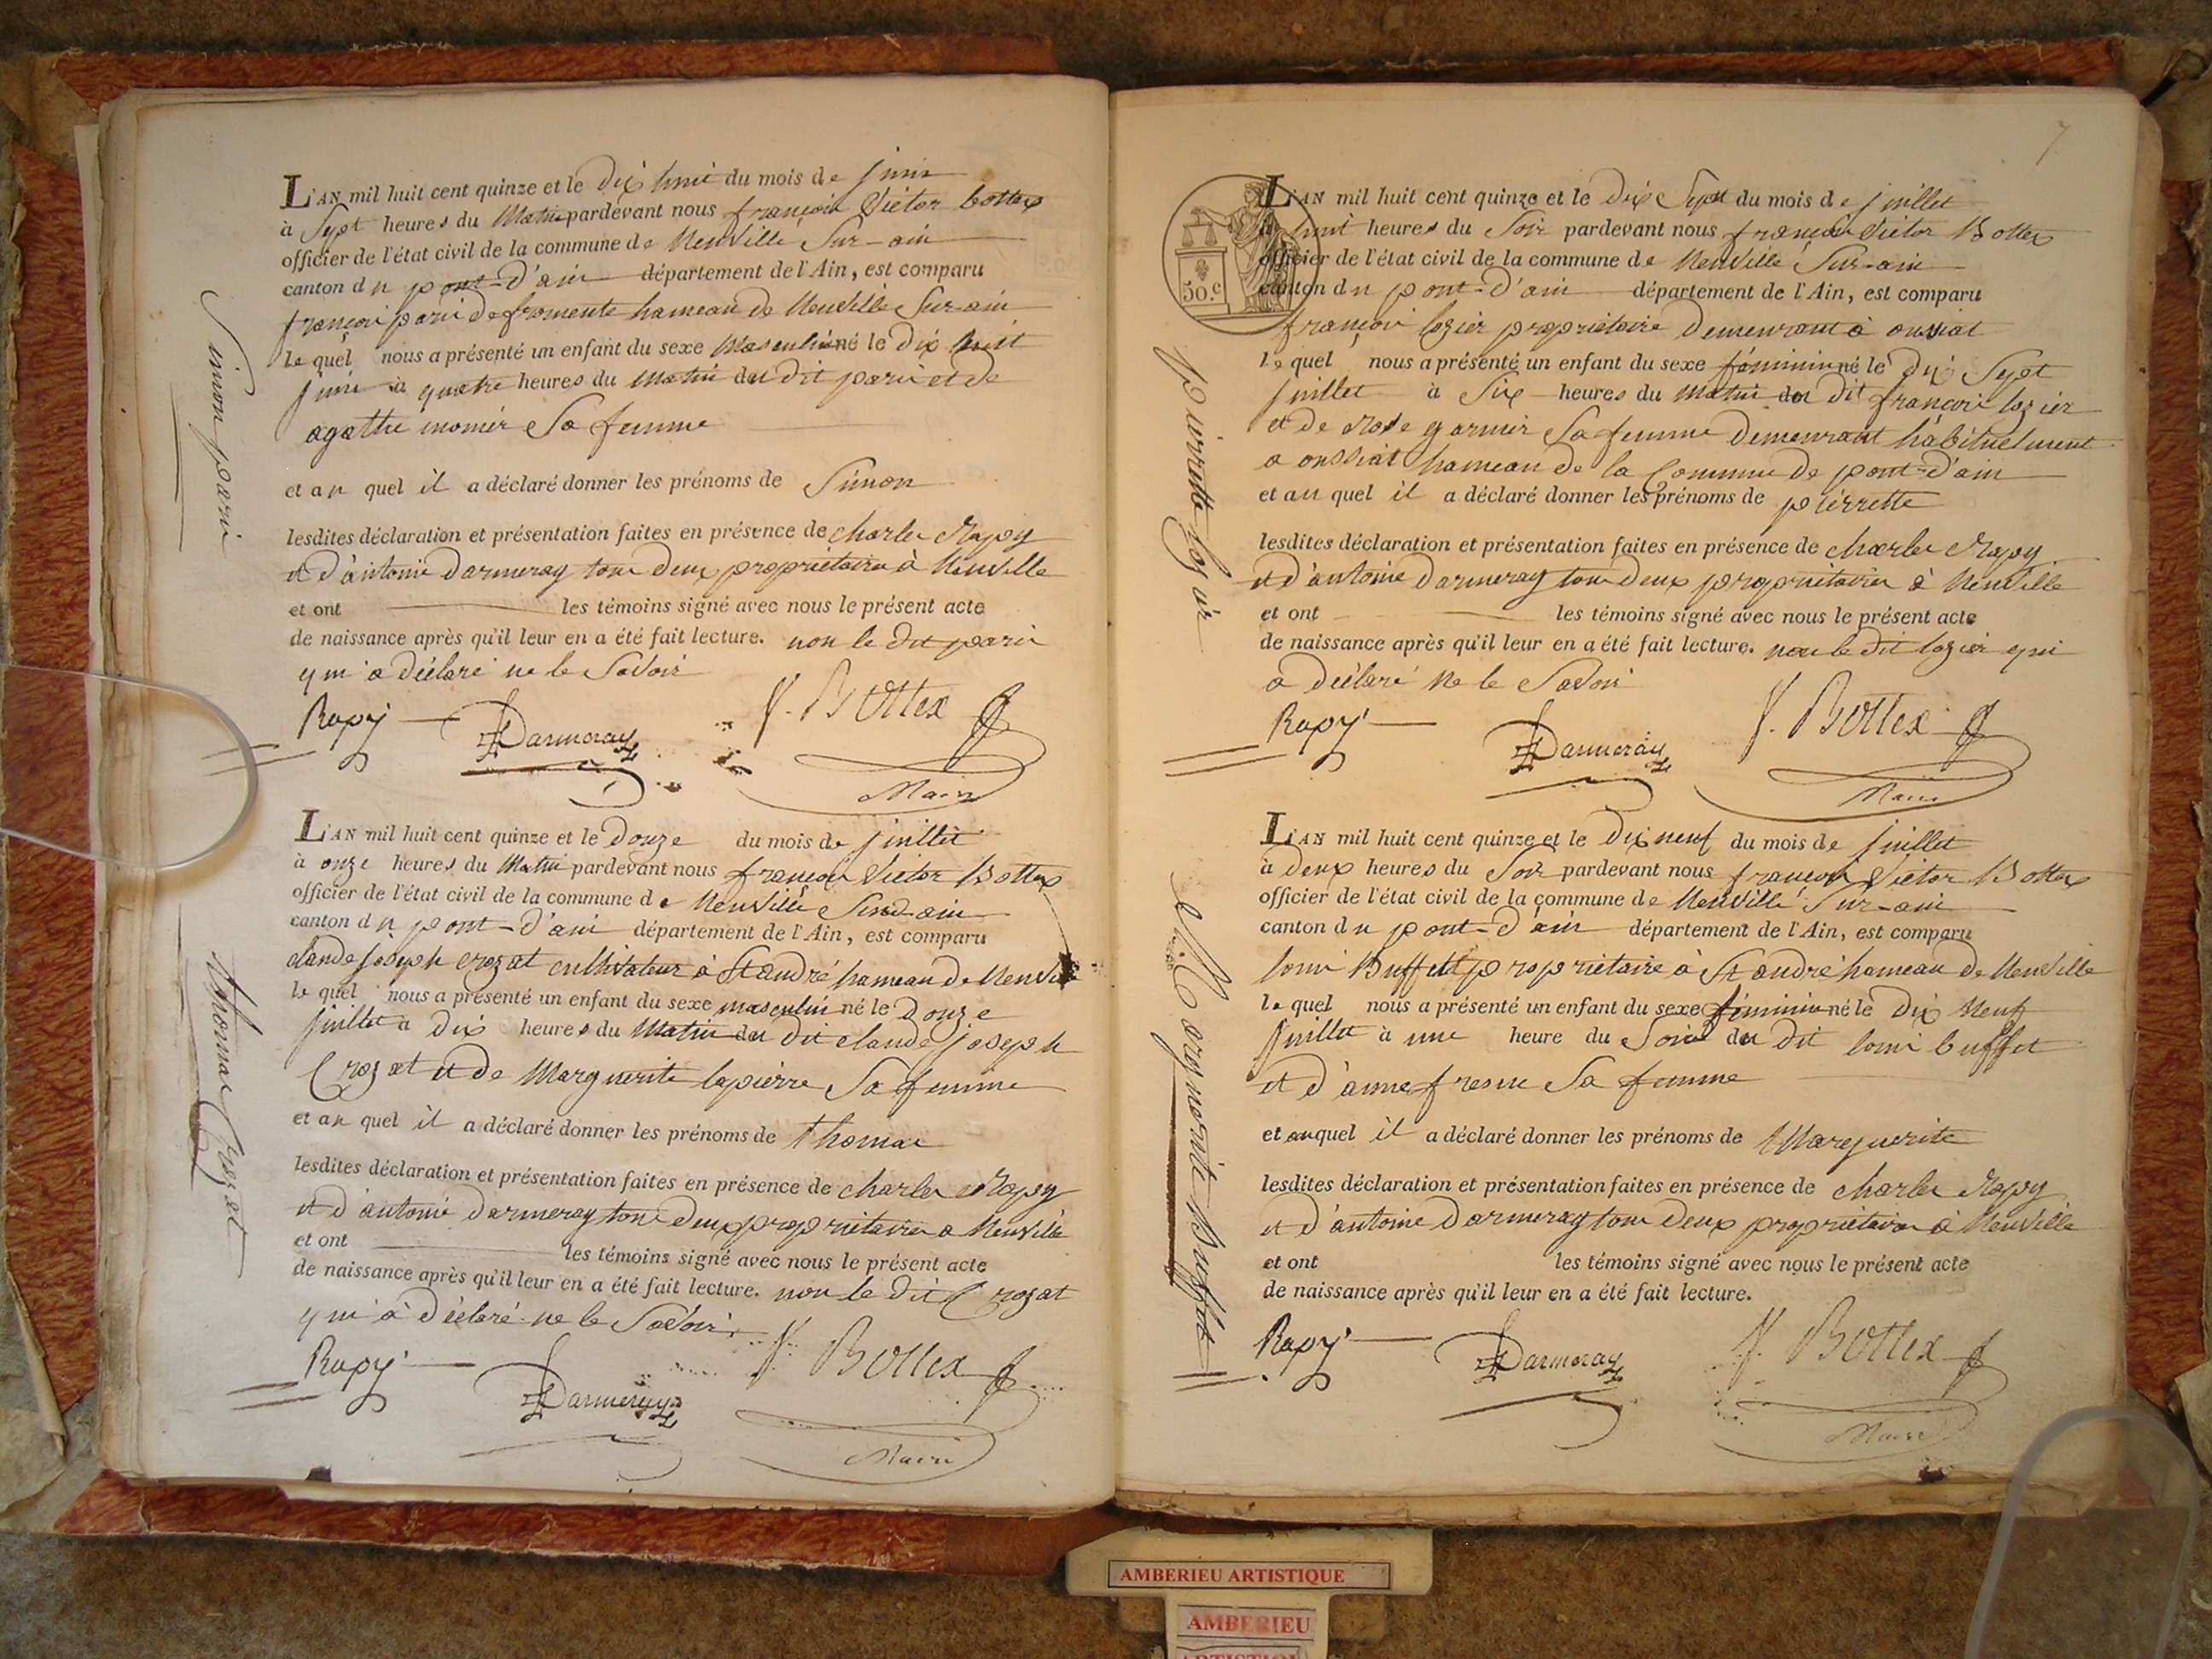 L'AN mil huit cent quinze et le dix huit du mois de juin
à Sept heures du Matin pardevant nous françois Victor bottex
officier de l'état civil de la commune de Neuville Sur-ain
canton du pont-d'ain département de l'Ain, est comparu
françois paris de fromente hameau de Neuville Sur-ain
le quel nous a présenté un enfant du sexe Masculin né le dix huit
juin à quatre heures du matin du dit paris et de
agathe monier Sa femme
et au quel il a déclaré donner les prénoms de Simon
lesdites déclaration et présentation faites en présence de charles Rapy
et d'antoine darmeray tous deux propriétaires à Neuville
et ont les témoins signé avec nous le présent acte
de naissance après qu'il leur en a été fait lecture. non le dit paris
qui a déclaré ne le Savoir
Rapy Darmeray V. Bottex
Maire
Simon paris
L'AN mil huit cent quinze et le douze du mois de juillet
à onze heures du Matin pardevant nous françois Victor Bottex
officier de l'état civil de la commune de Neuville Sur-ain
canton du pont-d'ain département de l'Ain, est comparu
claude joseph crozat cultivateur à St andré hameau de Neuville
le quel nous a présenté un enfant du sexe masculin né le Douze
juillet à dix heures du Matin du dit claude joseph
Crozat et de Marguerite lapierre Sa femme
et au quel il a déclaré donner les prénoms de thomas
lesdites déclaration et présentation faites en présence de charles Rapy
et d'antoine darmeray tous deux propriétaires a Neuville
et ont les témoins signé avec nous le présent acte
de naissance après qu'il leur en a été fait lecture. non le dit Crozat
qui a déclaré ne le Savoir
Rapy Darmeray V. Bottex
Maire
thomas Crozat
7
50.c
L'AN mil huit cent quinze et le dix Sept du mois de juillet
à huit heures du Soir pardevant nous françois Victor Bottex
officier de l'état civil de la commune de Neuville Sur-ain
canton du pont-d'ain département de l'Ain, est comparu
françois lozier propriétaire demeurant à oussiat
le quel nous a présenté un enfant du sexe féminin né le dix Sept
juillet à Six heures du Matin du dit françois lozier
et de Rose garnier Sa femme demeurant habituelment
a oussiat hameau de la Commune de pont-d'ain
et au quel il a déclaré donner les prénoms de pierrette
lesdites déclaration et présentation faites en présence de charles Rapy
et d'antoine darmeray tous deux propriétaires à Neuville
et ont les témoins signé avec nous le présent acte
de naissance après qu'il leur en a été fait lecture. non le dit lozier qui
a déclaré ne le Savoir
Rapy Darmeray V. Bottex
Maire
pierrette lozier
L'AN mil huit cent quinze et le dix neuf du mois de juillet
à deux heures du Soir pardevant nous françois Victor Bottex
officier de l'état civil de la commune de Neuville Sur-ain
canton du pont-d'ain département de l'Ain, est comparu
louis Buffet propriétaire à St andré hameau de Neuville
le quel nous a présenté un enfant du sexe féminin né le dix Neuf
juillet à une heure du Soir du dit louis buffet
et d'anne fresne Sa femme
et au quel il a déclaré donner les prénoms de Marguerite
lesdites déclaration et présentation faites en présence de charles Rapy
et d'antoine darmeray tous deux propriétaires à Neuville
et ont les témoins signé avec nous le présent acte
de naissance après qu'il leur en a été fait lecture.
Rapy Darmeray V. Bottex
Maire
Marguerite Buffet
AMBERIEU ARTISTIQUE
AMBERIEU
ARTISTIQUE